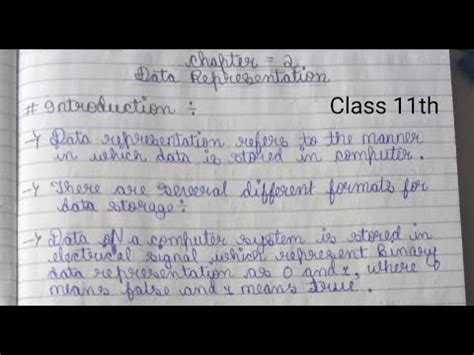 Chapter = 2.
Data Representation
# Introduction ÷
Class 11th
→ Data representation refers to the manner
in which data is stored in computer.
→ There are several different formats for
data storage ÷
→ Data of a computer system is stored in
electrical signal which represent Binary
data representation as 0 and 1, where 0
means false and 1 means True.